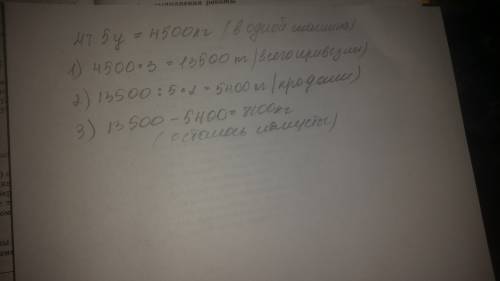 управления работы
4т. 5ц = 4500кг (в одной машине)
1) 4500•3 = 13500 т (всего привезли)
2) 13500 : 5•2 = 5400 кг (продали)
3) 13500 – 5400 = 8100кг
(осталось капусты)